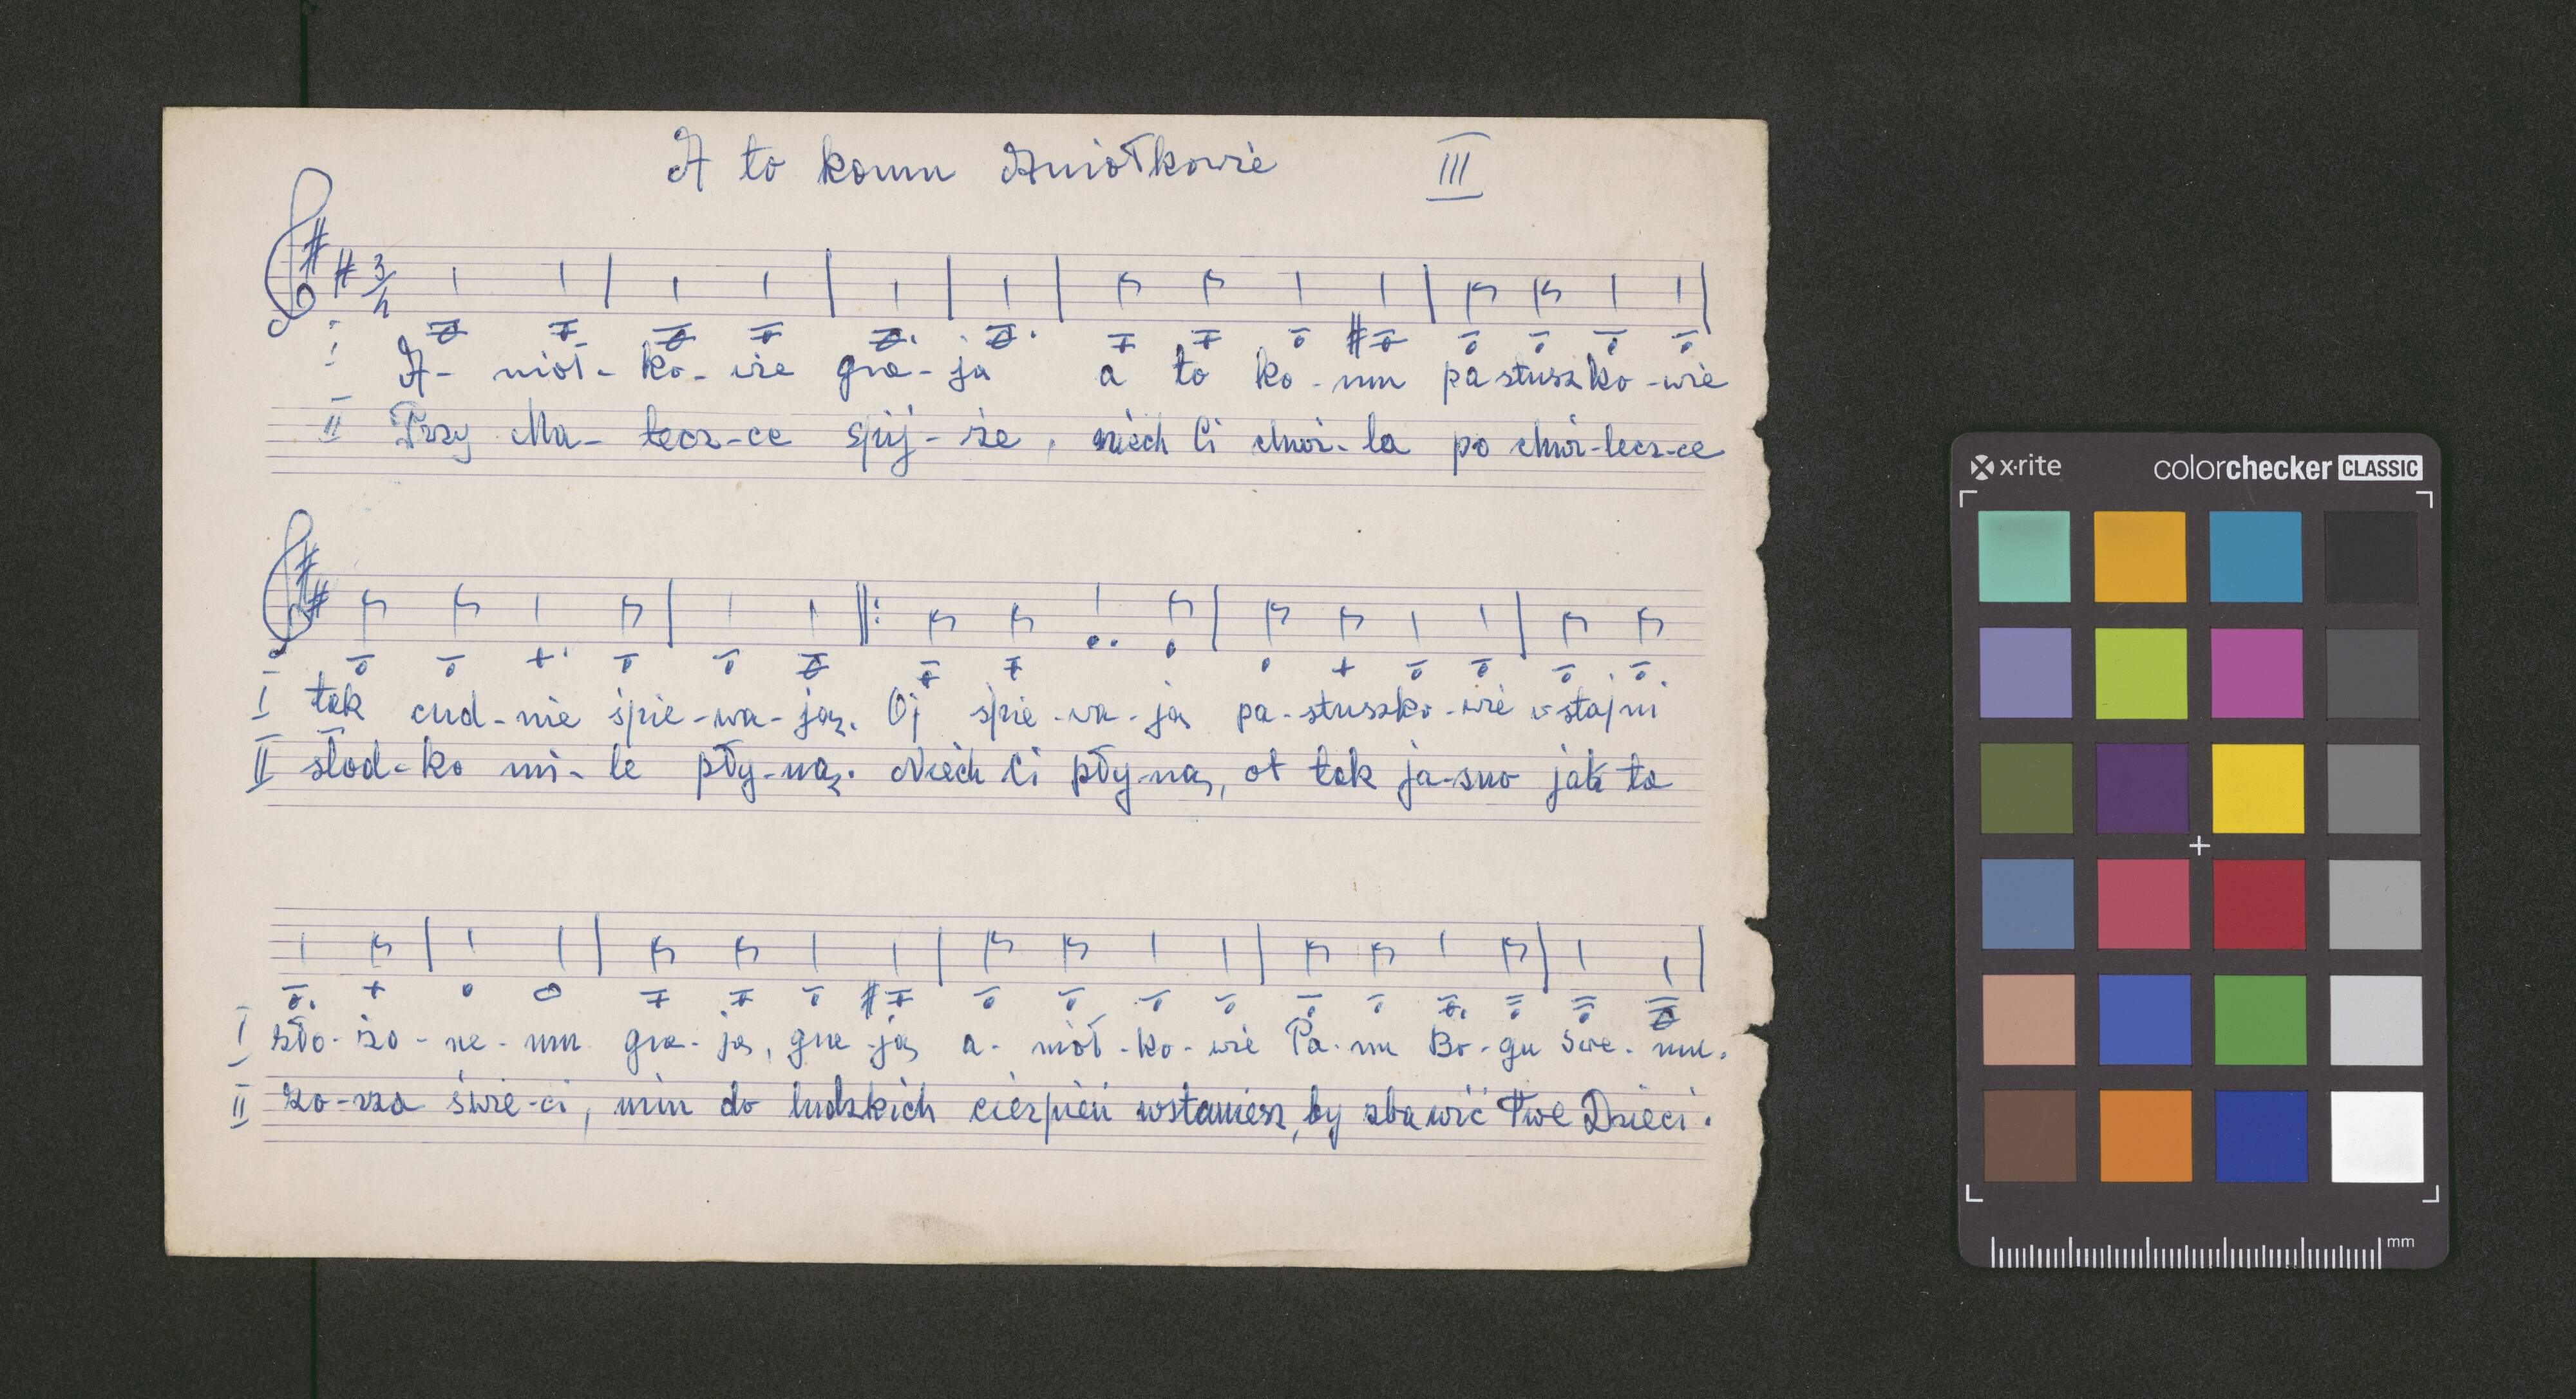 A to komu Aniołkowie III
3/4
I A- nioł- ko- wie gra- ja a to ko- mu pastuszko-wie
II Przy Ma- tecz-ce śpij- że, niech Ci chwi- la po chwi-lecz-ce
I tak cud- nie śpie-wa- ją. Oj śpie-wa-ją pa-stuszko-wie w stajni
II słod-ko mi- le pły-ną. Niech Ci pły-ną, ot tak ja-sno jak ta
I zło- żo- ne- mu gra- ją, gra-ją a- nioł-ko- wie Pa- nu Bo- gu swe- mu.
II zo-rza świe-ci, nim do ludzkich cierpień wstaniesz, by zbawić Twe Dzieci.
x·rite colorchecker CLASSIC
mm